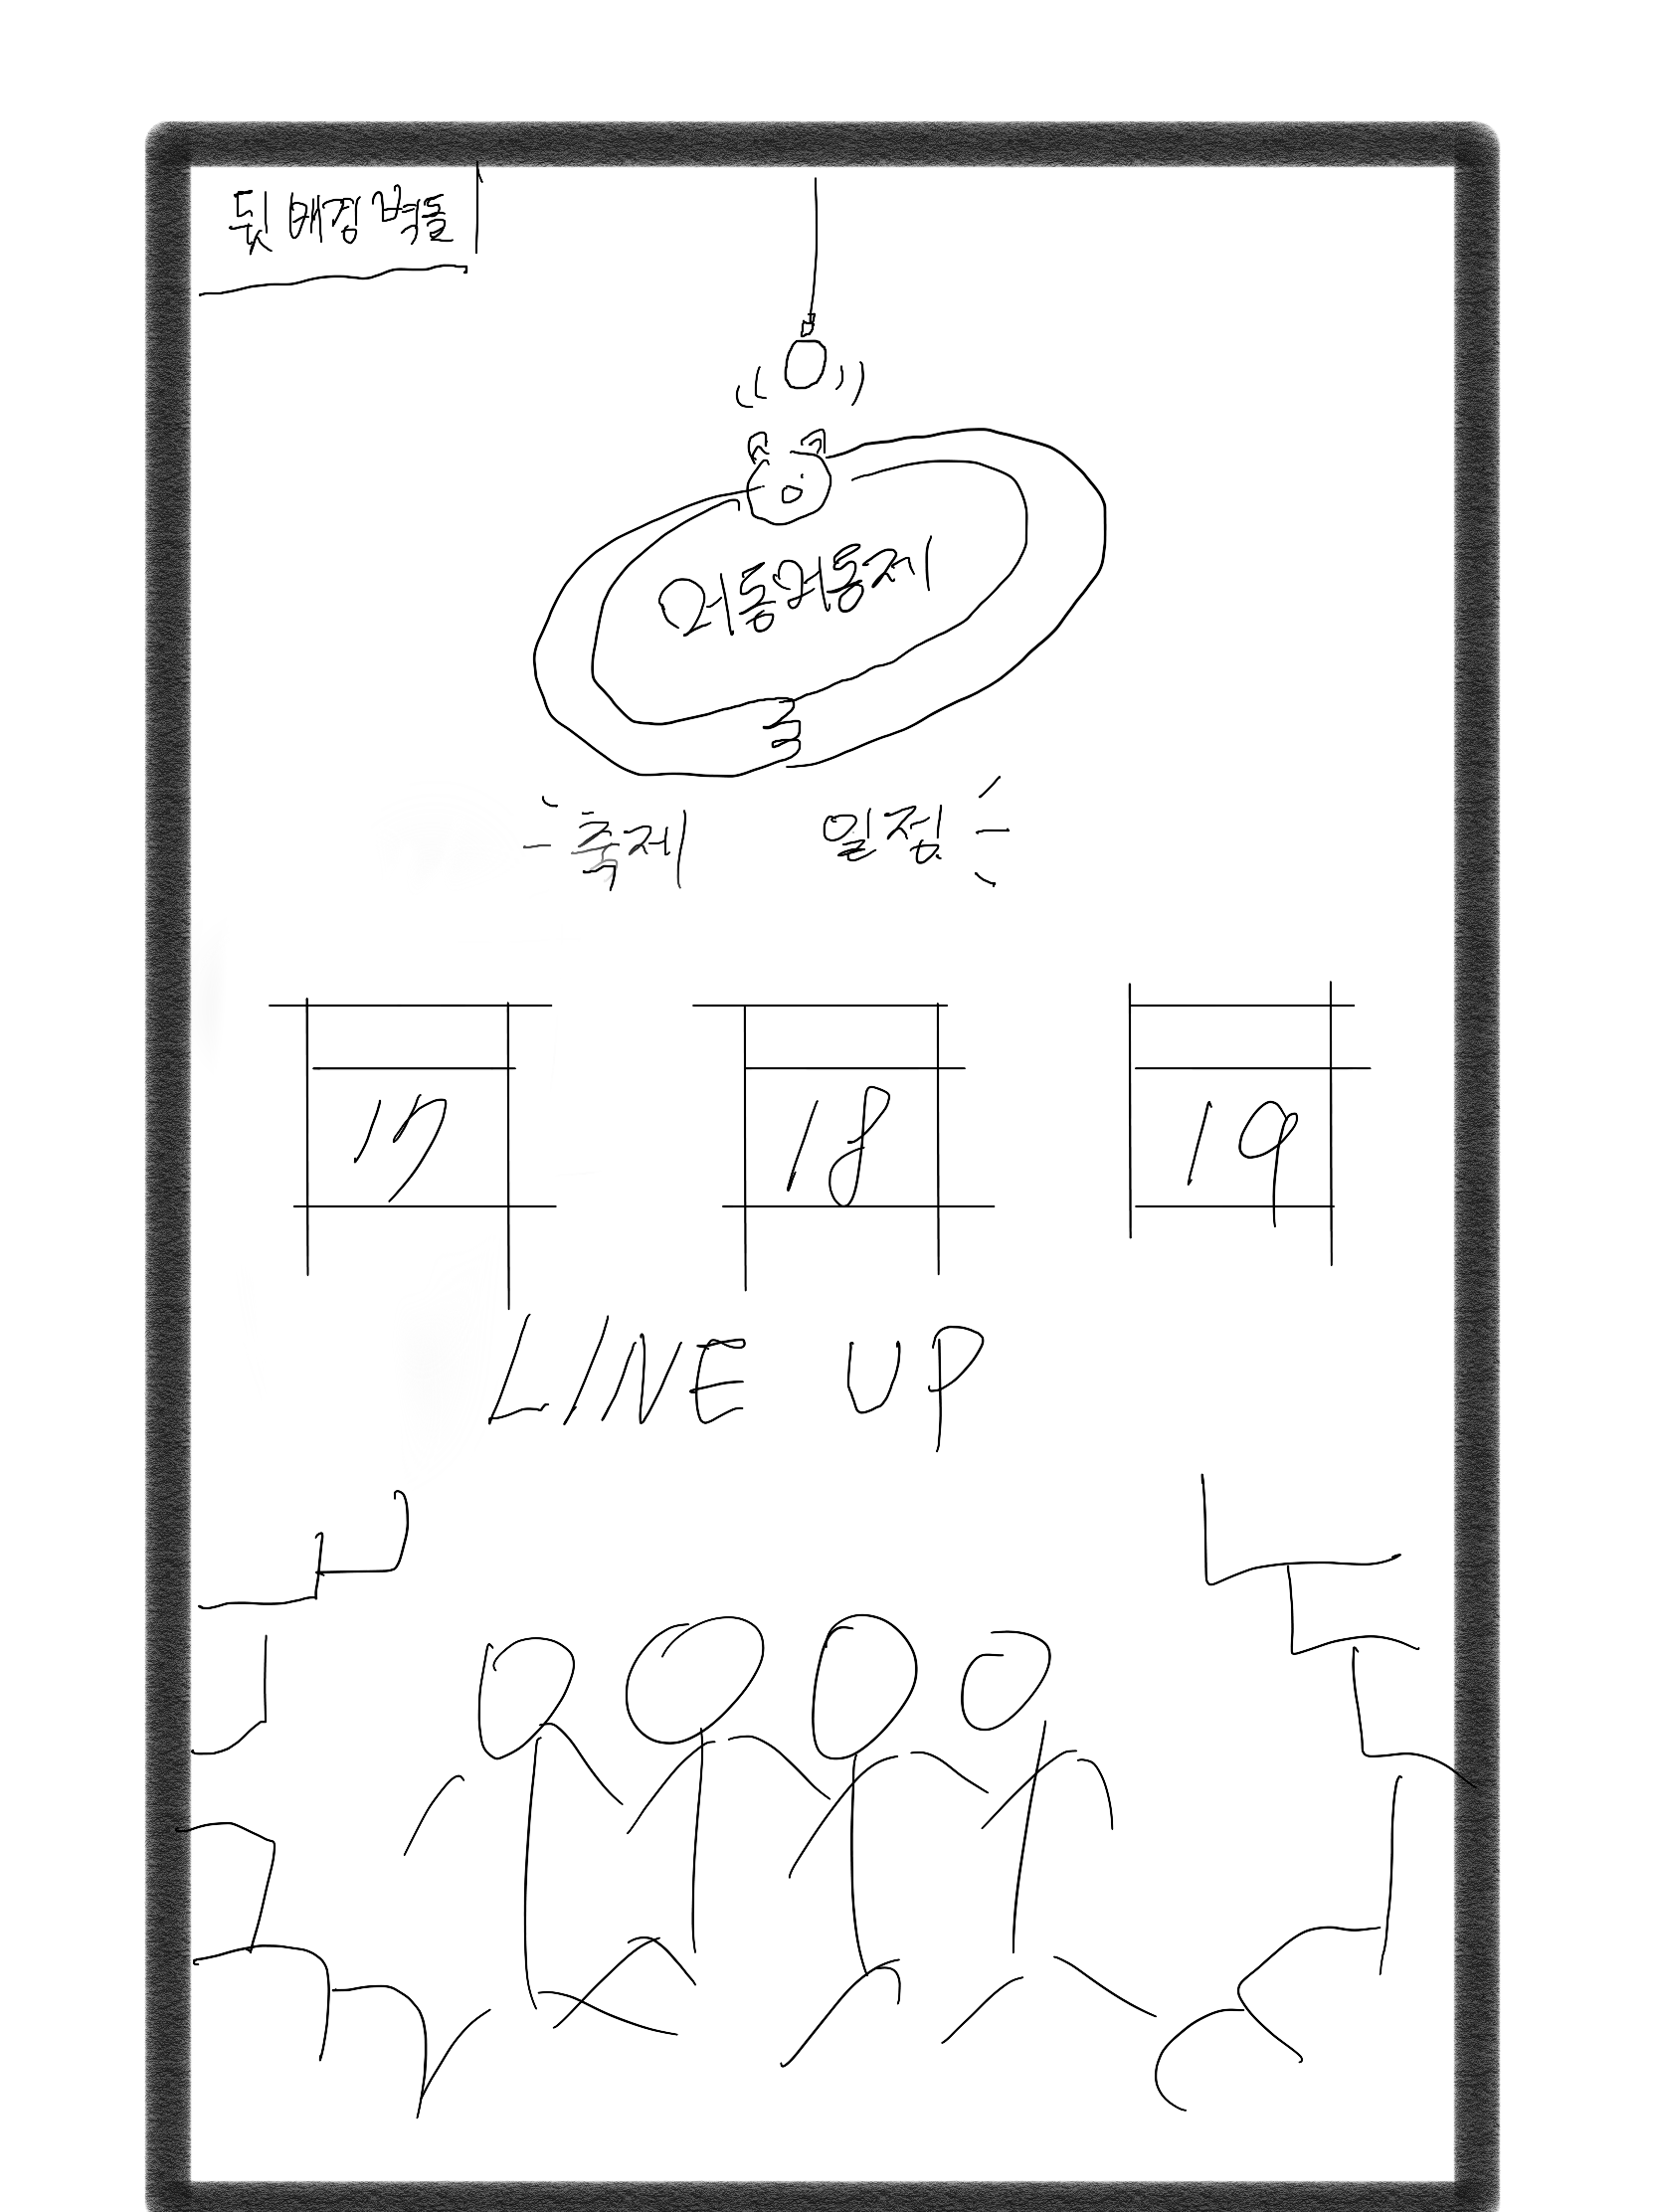 뒷 배경 벽돌
어동어동제
축제 일정
17 18 19
LINE UP